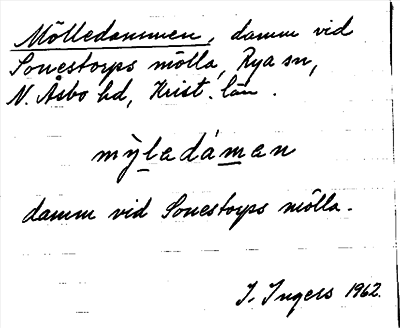 Mölledammen, damm vid
Sonestorps mölla, Rya sn,
N. Åsbo hd, Krist. län.
mỳledámen
damm vid Sonestorps mölla.
I. Ingers 1962.